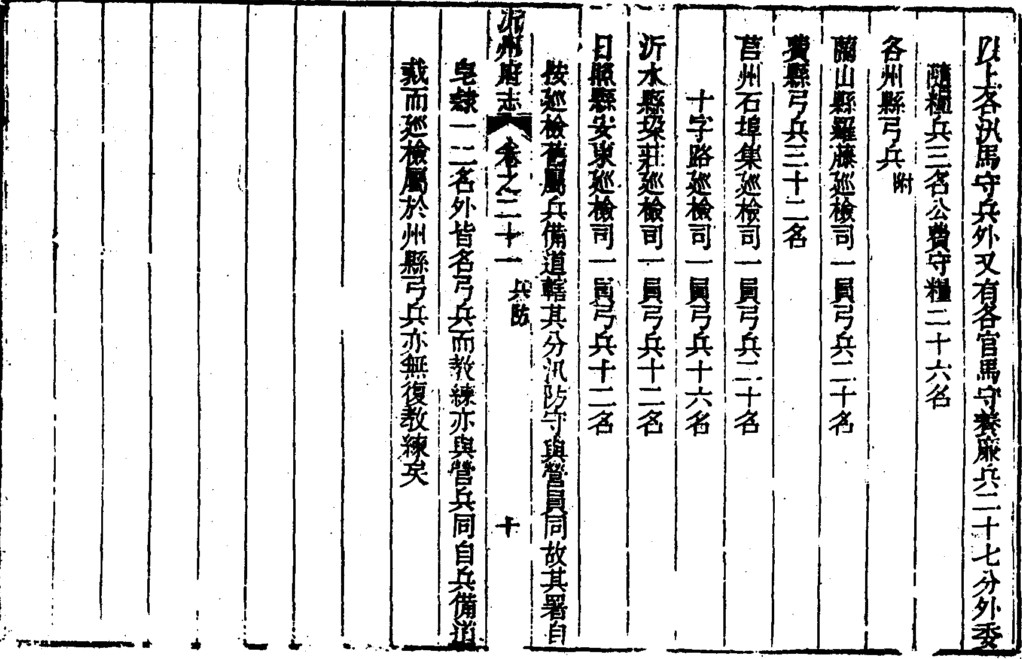 以上各汛馬守兵外又有各官馬守養廉兵二十七分外委
隨糧兵三名公費守糧二十六名
各州縣弓兵附
蘭山縣羅藤巡檢司一員弓兵二十名
費縣弓兵三十二名
莒州石埠集巡檢司一員弓兵二十名
十字路巡檢司一員弓兵十六名
沂水縣垜莊巡檢司一員弓兵十二名
日照縣安東巡檢司一員弓兵十二名
按巡檢舊屬兵備道轄其分汛防守與營員同故其署自
沂州府志 卷之二十一 兵防 十
皂隸一二名外皆名弓兵而教練亦與營兵同自兵備道
裁而巡檢屬於州縣弓兵亦無復教練矣